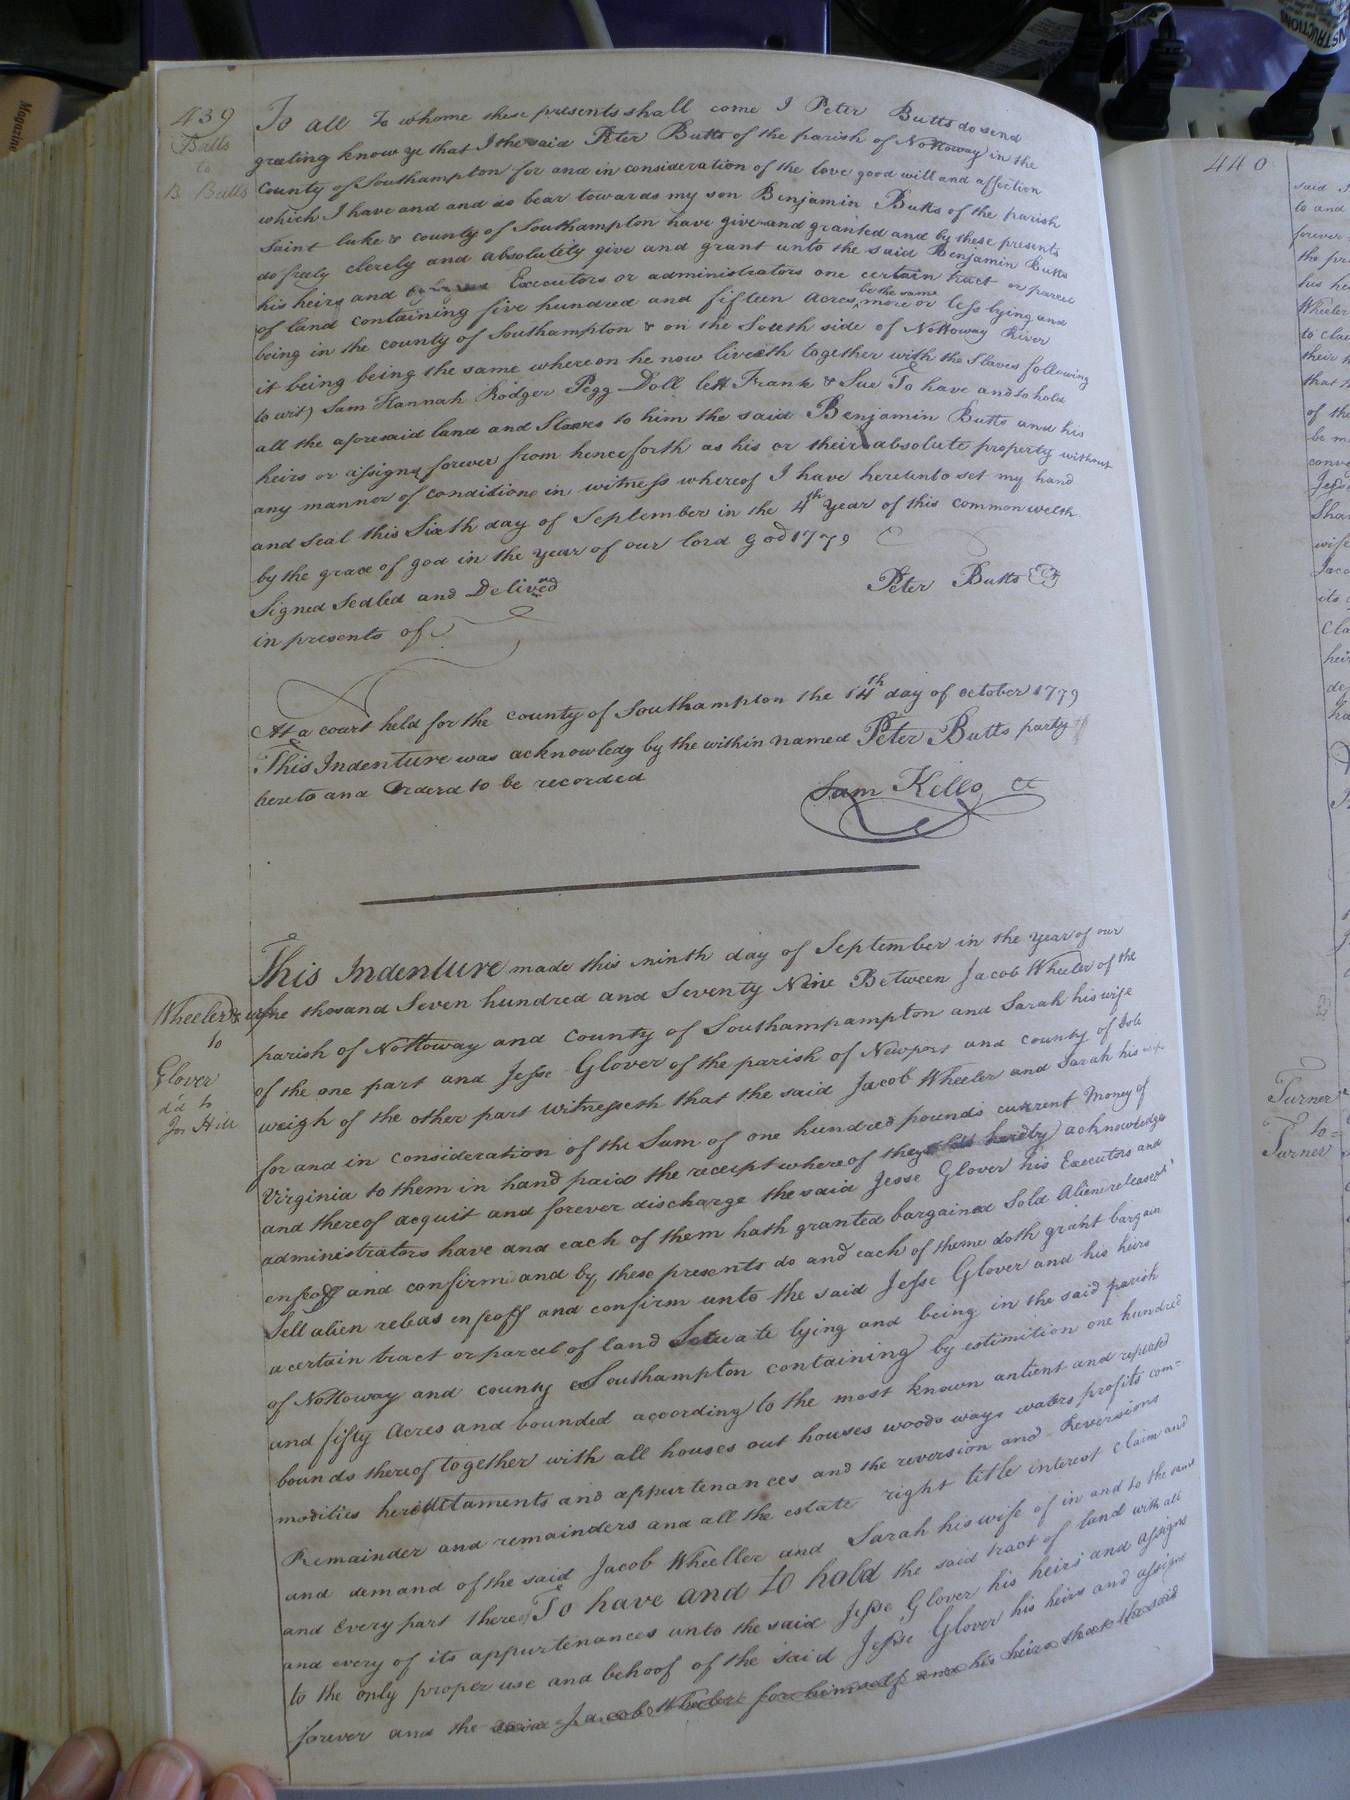 439
Butts
to
B. Butts
To all To whome these presents shall come I Peter Butts do send
grating know ye that I the said Peter Butts of the parish of Nottoway in the
County of Southampton for and in consideration of the love good will and affection
which I have and and do bear towards my son Benjamin Butts of the parish
Saint Luke & county of Southampton have give and granted and by these presents
do frely clerely and absolutely give and grant unto the said Benjamin Butts
his heirs and Executors or administrators one certain tract or parcel
of land containing five hundred and fifteen Acres, be the same more or less lying and
being in the county of Southampton & on the South side of Nottoway River
it being being the same whereon he now liveth together with the Slaves following
to wit) Sam Hannah Rodger Pegg Doll lett Frank & Sue To have and to hold
all the aforesaid land and Slaves to him the said Benjamin Butts and his
heirs or assigns forever from henceforth as his or their absolute property without
any manner of condition in witness whereof I have hereunto set my hand
and seal this Sixth day of September in the 4th Year of this commonwelth
by the grace of god in the Year of our lord god 1779
Signed Sealed and Delivered
Peter Butts
in presents of
At a court held for the county of Southampton the 14th day of october 1779
This Indenture was acknowledg by the within named Peter Butts party
hereto and Orderd to be recorded
Sam Kello, Ct
This Indenture made this ninth day of September in the Year of our
Wheeler & wife
to
Glover
d'd to
Jos Hill
one thosand Seven hundred and Seventy Nine Between Jacob Wheeler of the
parish of Nottoway and County of Southampampton and Sarah his wife
of the one part and Jesse Glover of the parish of Newport and County of Isle
weigh of the other part Witnesseth that the said Jacob Wheeler and Sarah his wife
for and in consideration of the Sum of one hundred pounds current Money of
Virginia to them in hand paid the receipt whereof they hereby acknowledge
and thereof acquit and forever discharge the said Jesse Glover his Executors and
administrators have and each of them hath granted bargained Sold Aliened released
enfeoff and confirm and by these presents do and each of theme doth graint bargain
Sell alien releas enfeoff and confirm unto the said Jesse Glover and his heirs
a certain tract or parcel of land Setuate lying and being in the said parish
of Nottoway and county Southampton containing by estimition one hundred
and fifty Acres and bounded according to the most known antient and reputed
bounds thereof together with all houses out houses woods ways waters profits com=
modities hereditaments and appurtenances and the reversion and Reversions
Remainder and remainders and all the estate right title interest Claim and
and demand of the said Jacob Wheeller and Sarah his wife of in and to the same
and Every part thereof To have and to hold the said tract of land with all
and every of its appurtenances unto the said Jesse Glover his heirs and assigns
to the only proper use and behoof of the said Jesse Glover his heirs and assigns
forever and the said Jacob Wheeler for himself and his heirs that the said
440
said
to and
forever
the
his
Wheeler
to
their
that
of the
be
wife
its
Turner
to=
Turner
Magazine